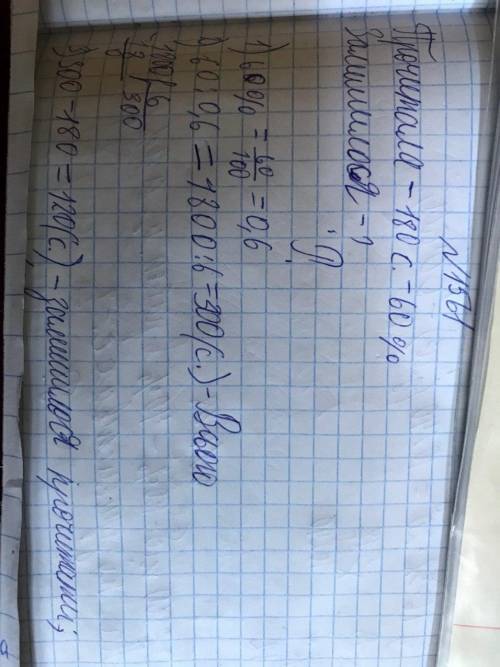 №1561
Прочитала – 180 с. – 60%
Залишилося – ?
1) 60% = 60/100 = 0,6
2) 180:0,6 = 1800:6 = 300(с.) – Всього
1800 6
18 300
0
3) 300 – 180 = 120(с.) – залишилося прочитати;